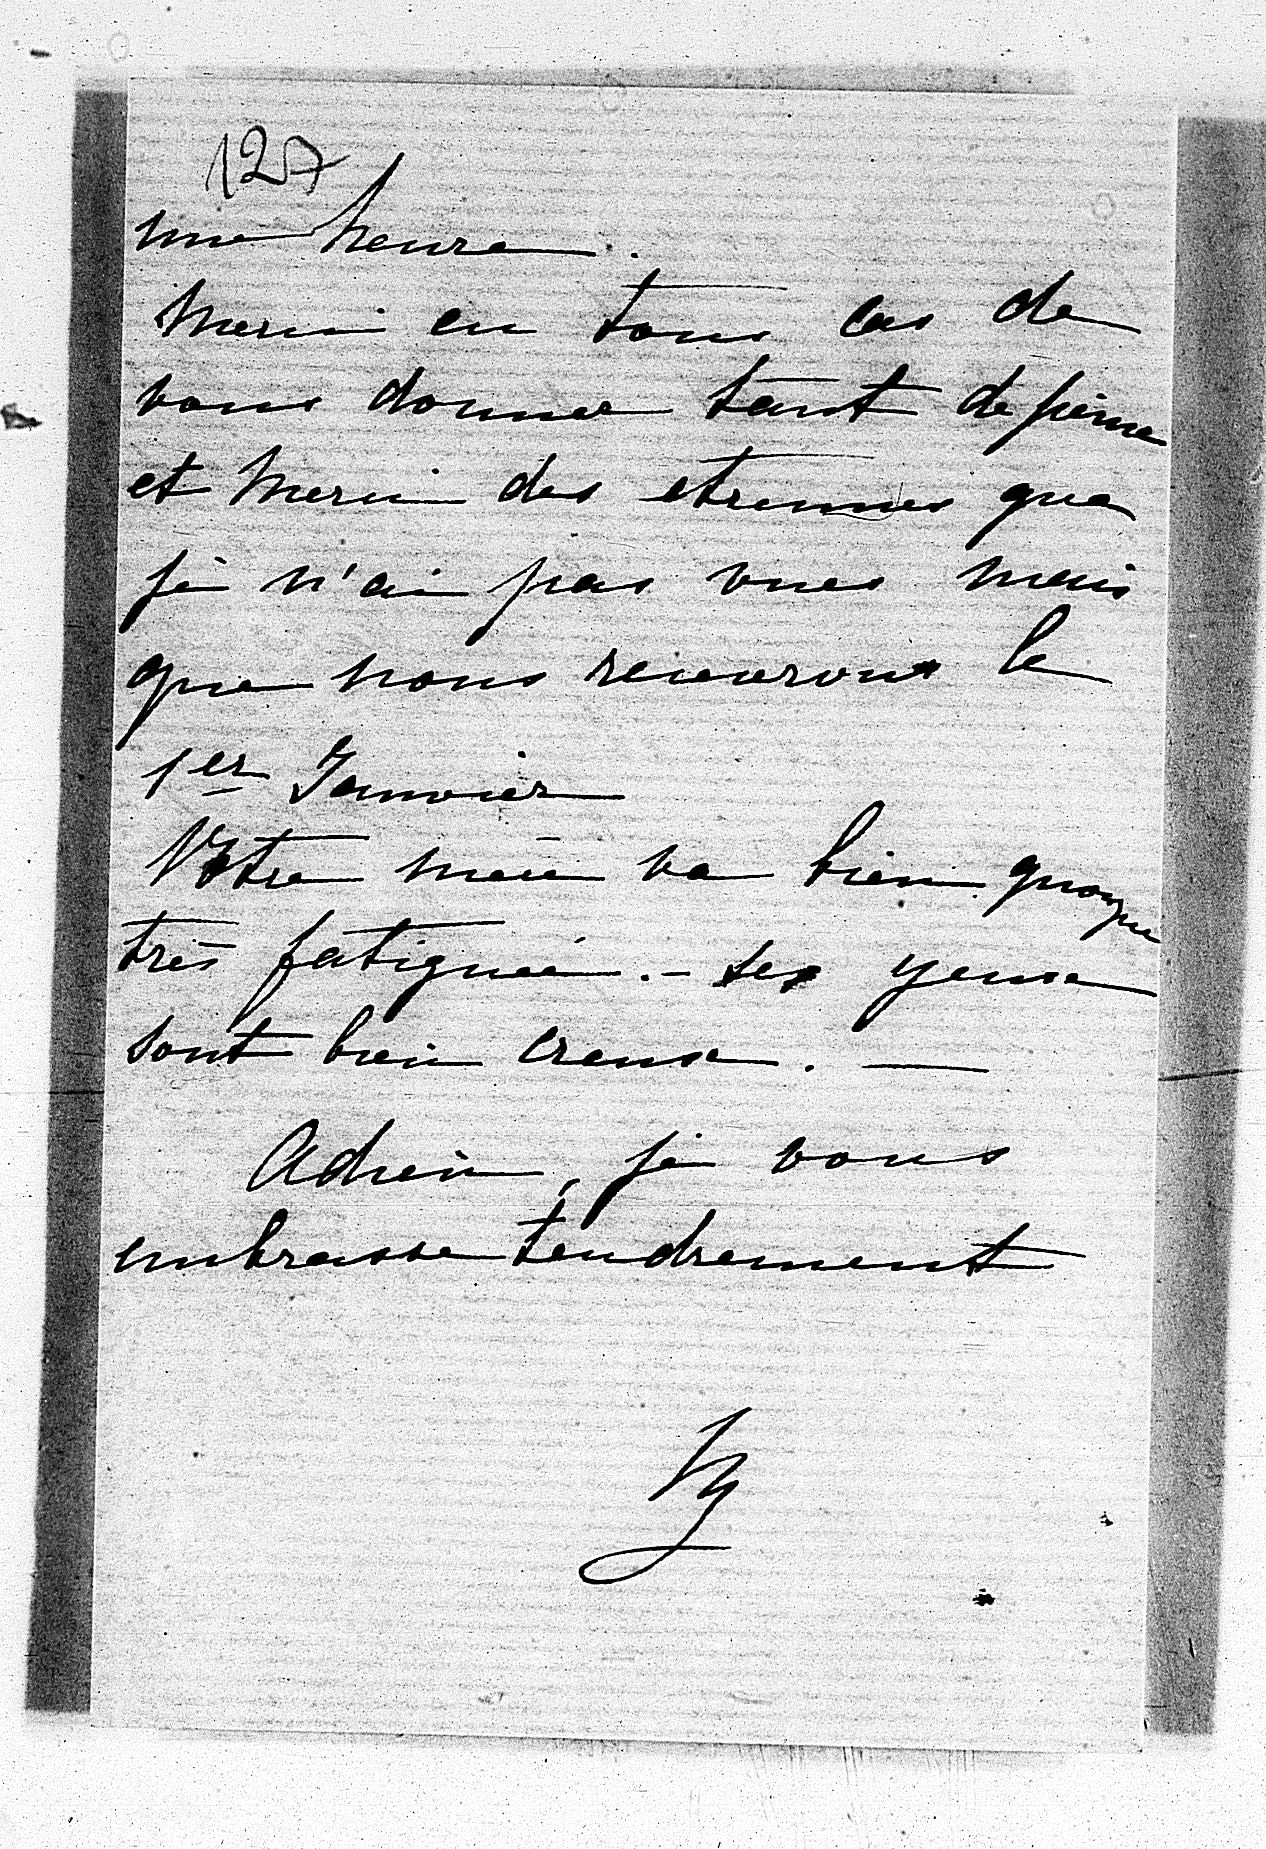 127
une heure.
Merci en tous cas de
vous donner tant de peine
et merci des etrennes que
je n'ai pas vues mais
que nous recevrons le
1er Janvier
Votre mère va bien quoique
très fatiguée. - Ses yeux
sont bien creux. —
Adieu, je vous
embrasse tendrement